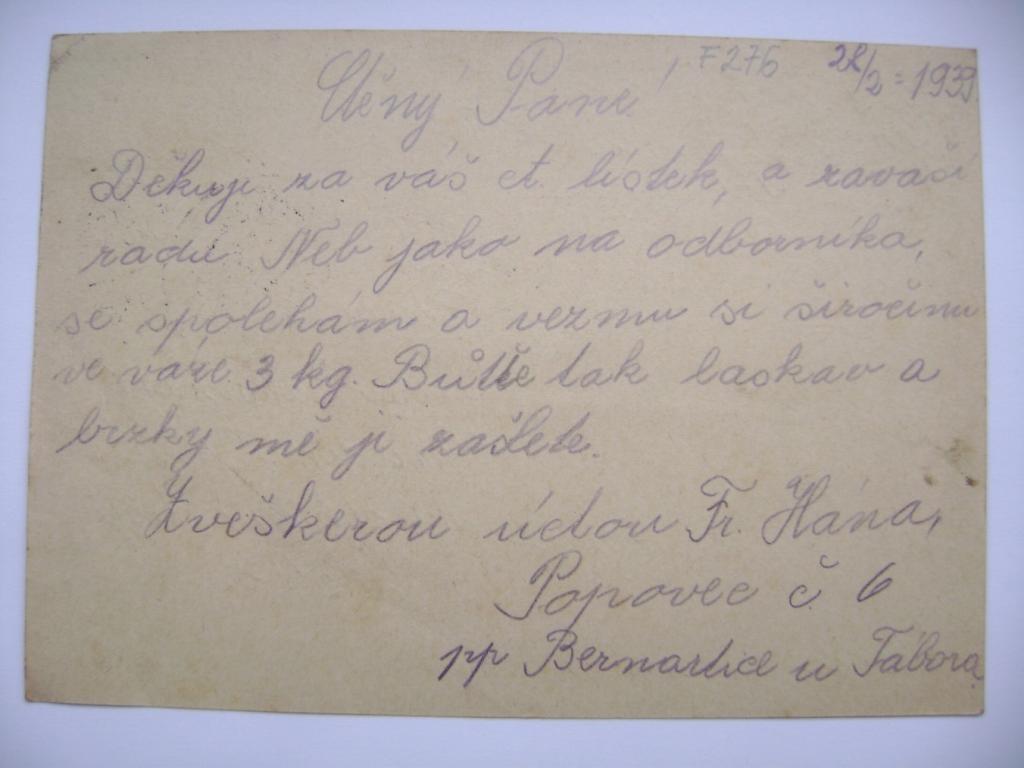 F276 28/2 = 1939
Ctěný Pane!
Děkuji za váš ct. lístek, a zavaší
radu Neb jako na odborníka,
se spolehám a vezmu si širočinu
ve váze 3 kg. Buďte tak laskav a
brzky mě ji zašlete.
Zveškerou úctou Fr. Hána,
Popovec č. 6
pp Bernartice u Tábora